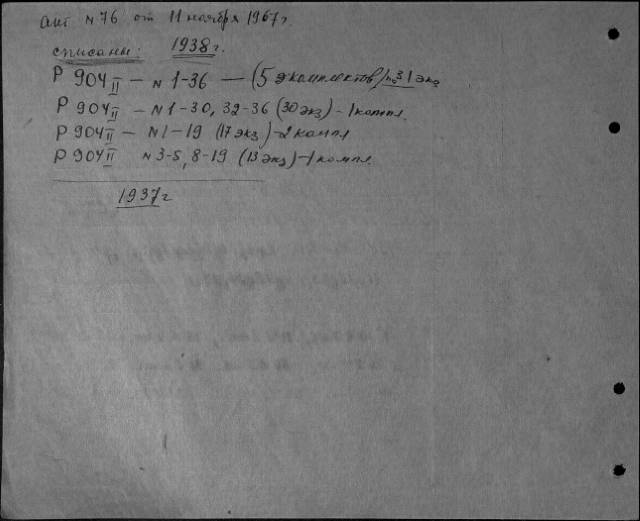 Акт № 76 от 11 ноября 1967 г.
списаны: 1938 г.
Р 904 II – № 1-36 — (5 экомплектов) по 31 экз
Р 904 II – № 1-30, 32-36 (30 экз) – 1 компл.
Р 904 II – № 1-19 (17 экз) – 2 компл
Р 904 II № 3-5, 8-19 (13 экз) – 1 компл.
1937 г